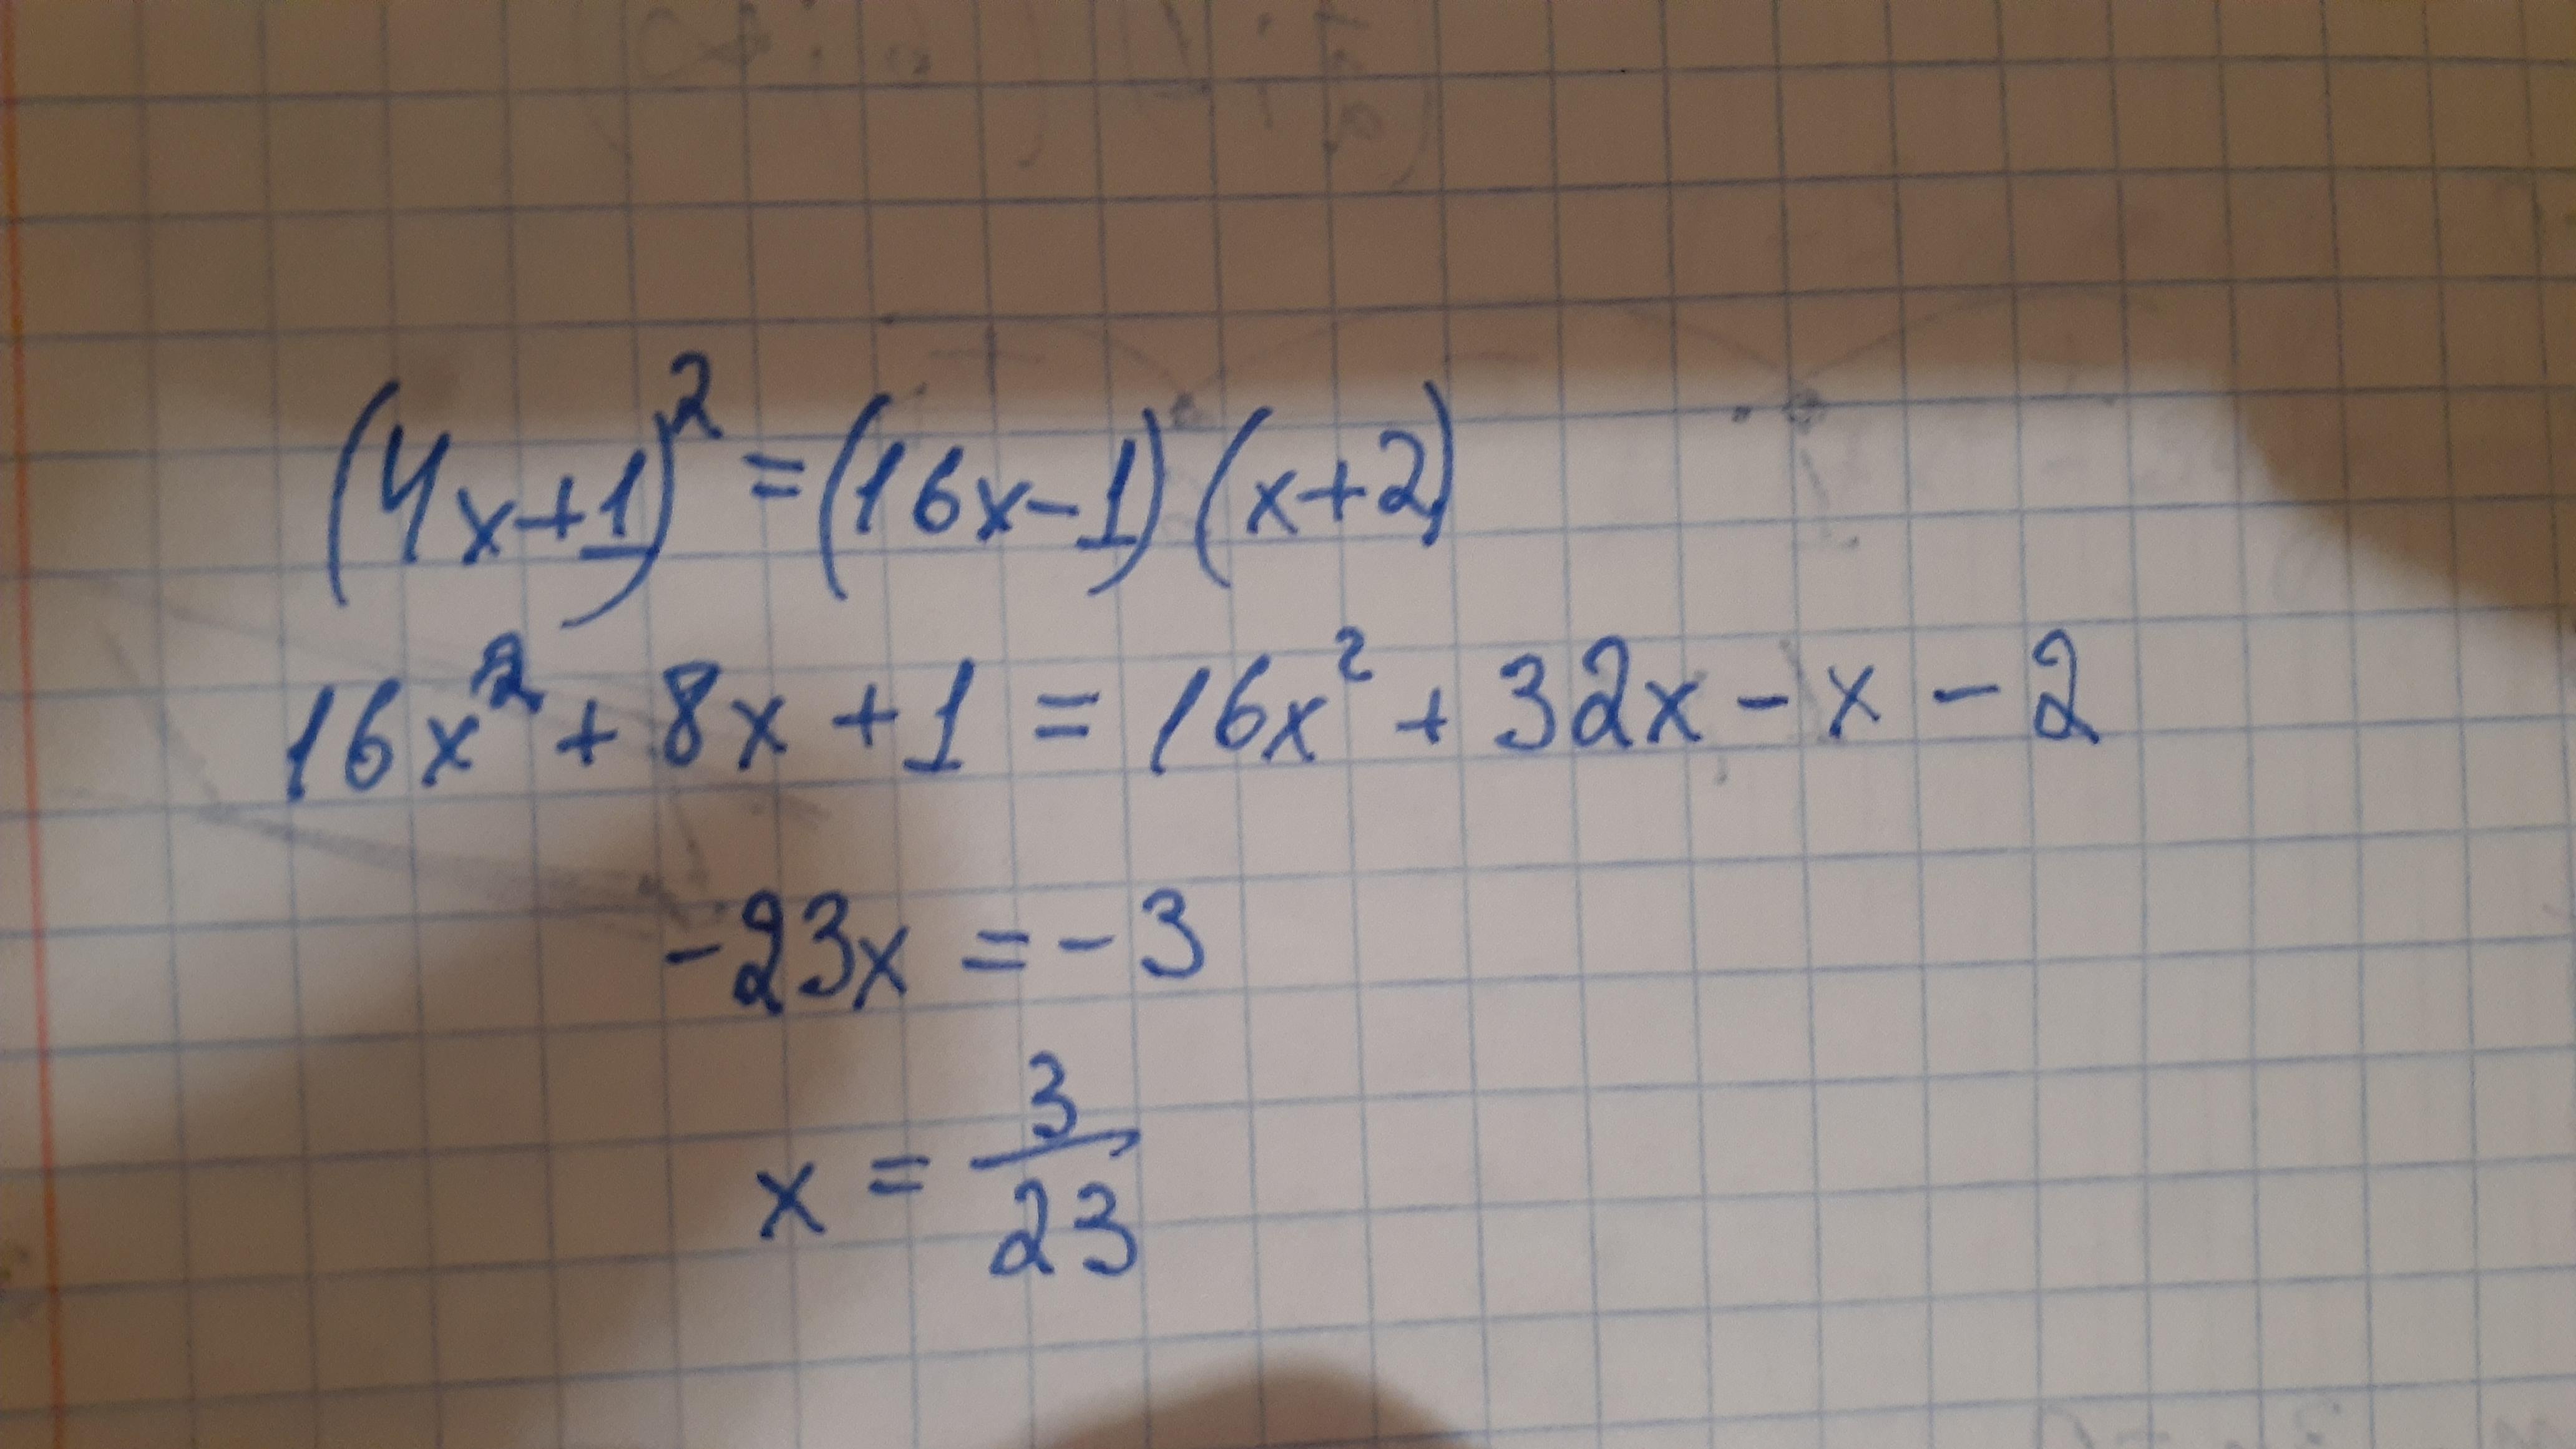 (4x+1)² = (16x-1)(x+2)
16x² + 8x + 1 = 16x² + 32x - x - 2
-23x = -3
x = 3/23